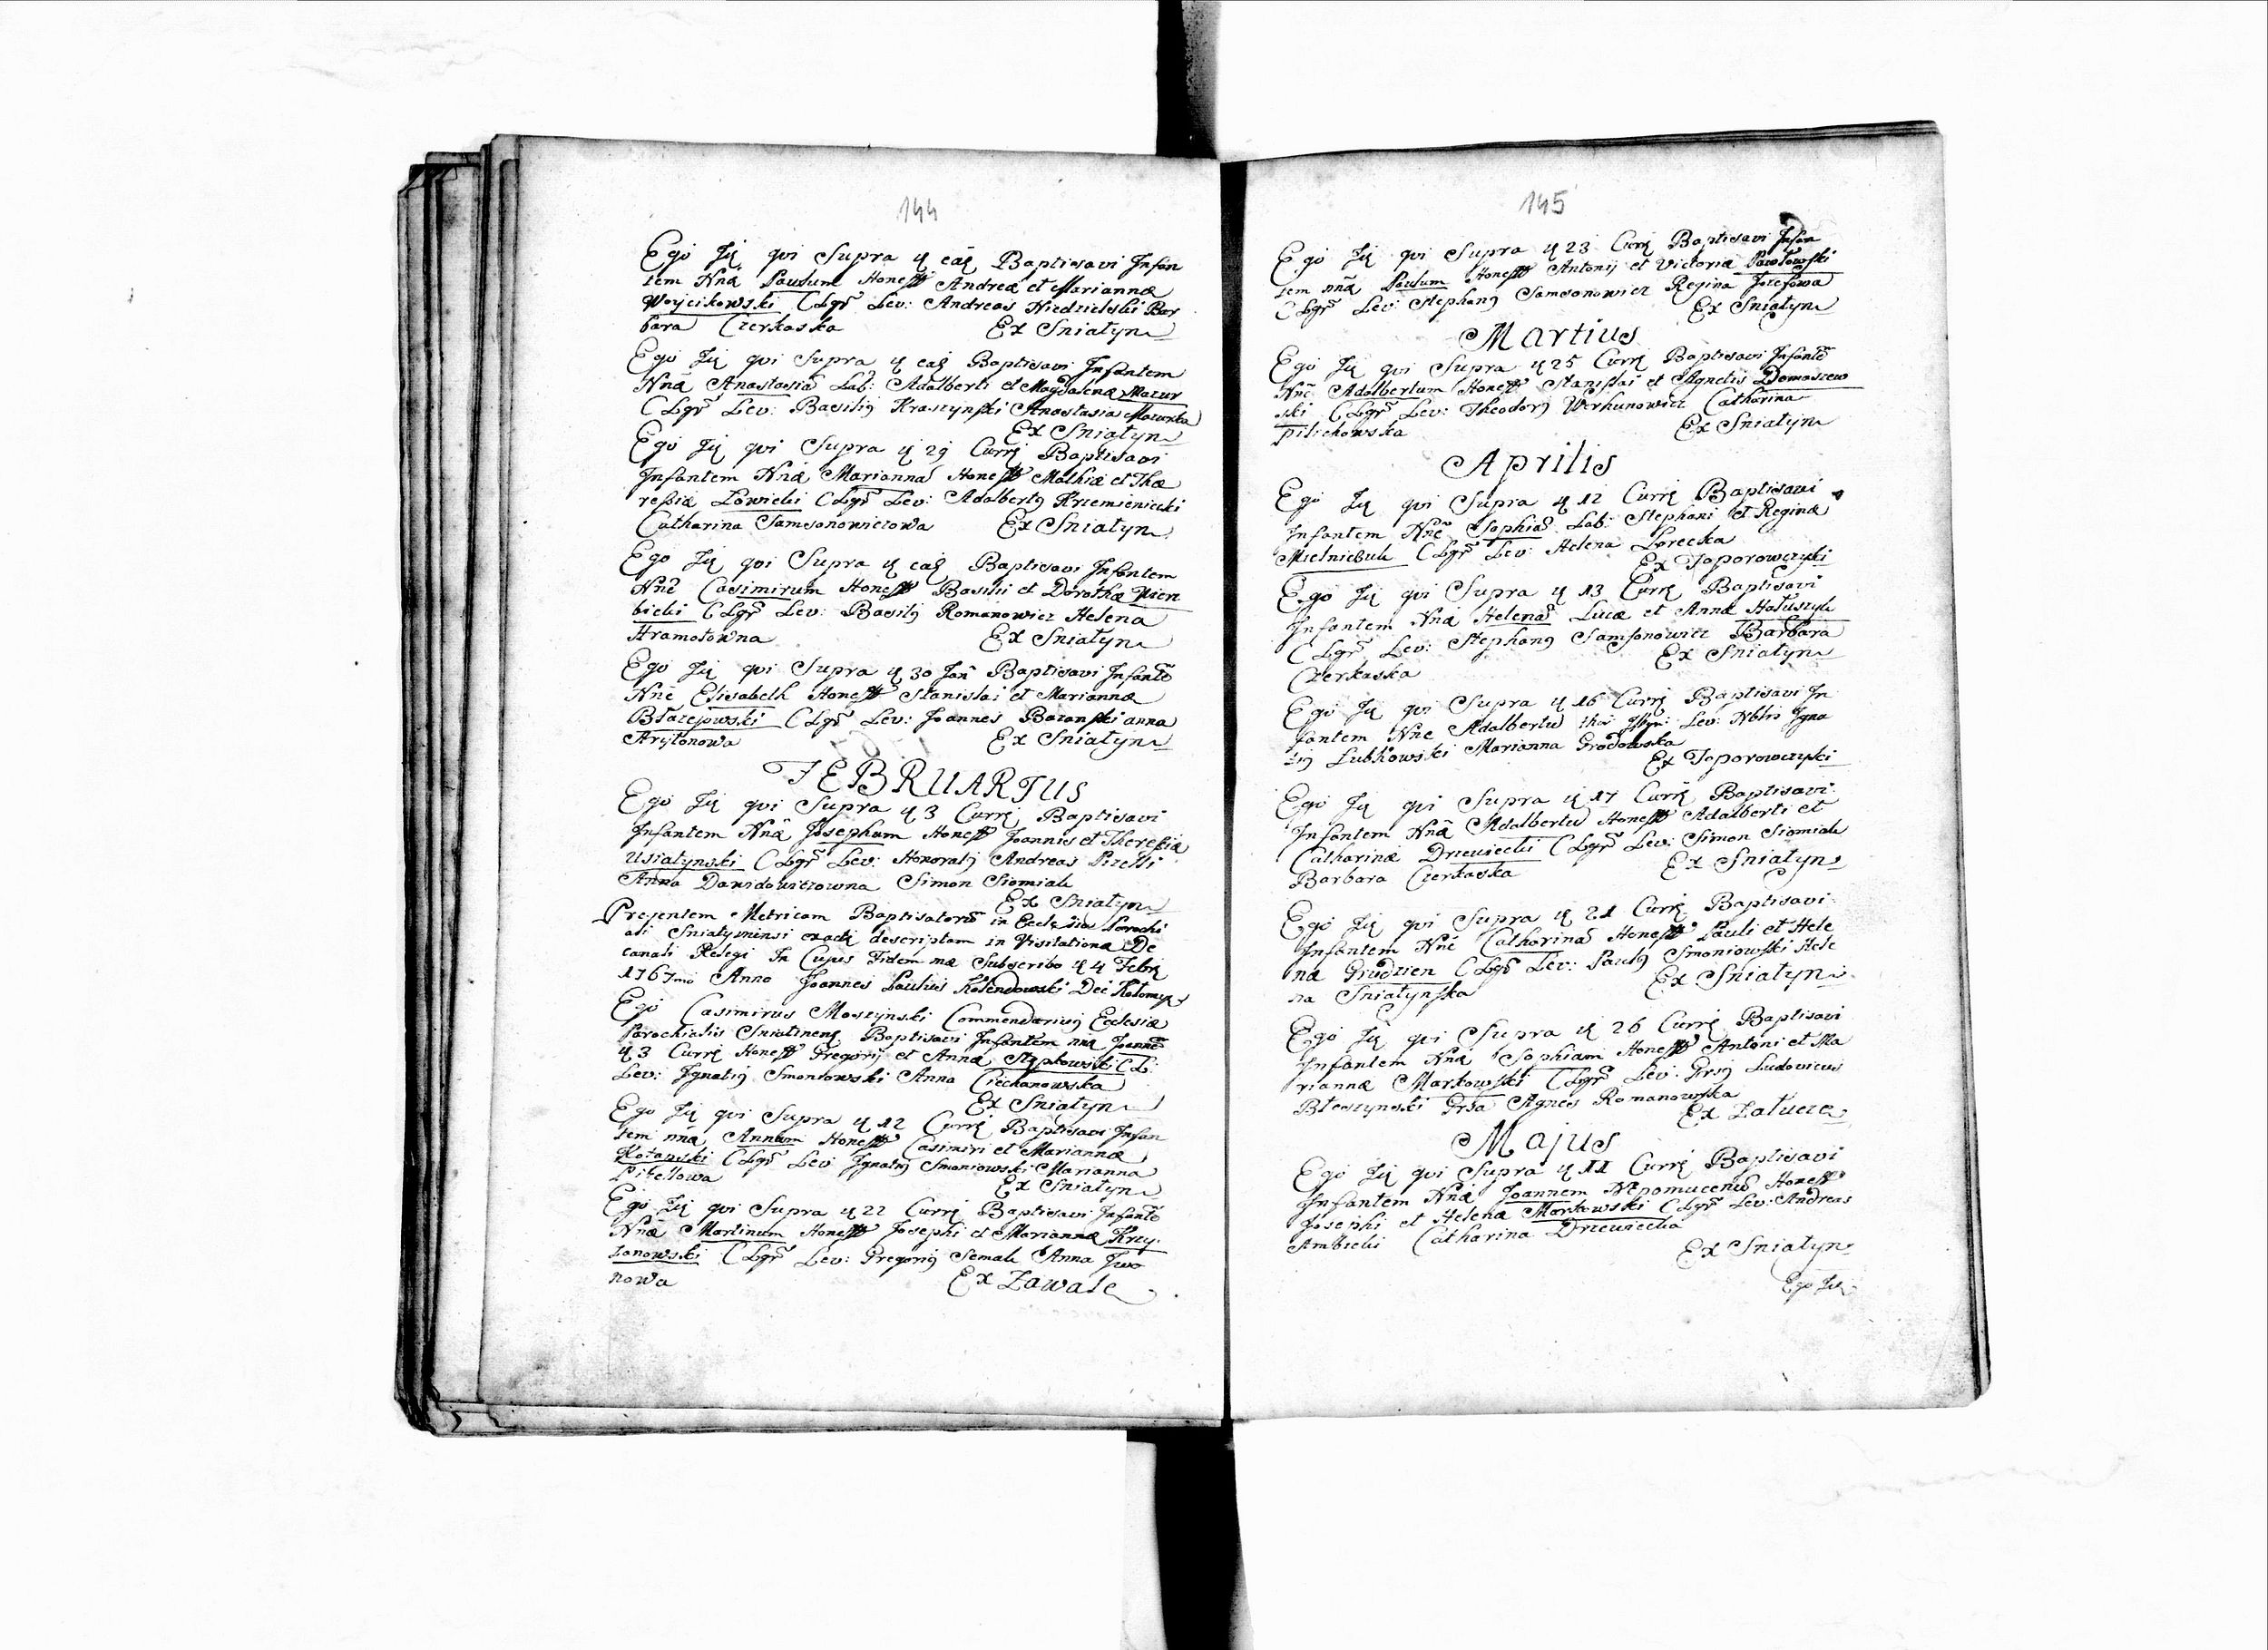 144
Ego Id qui Supra d ead Baptisavi Infan
tem Nnā Paulum Honest Andreæ et Mariannæ
Woycikowski CLgr Lev: Andreas Niedzielski Bar
bara Czerkaska Ex Sniatyn
Ego Id qui Supra d ead Baptisavi Infantem
Nnā Anastasiā Lab: Adalberti et Magdalenæ Mazur
CLgr Lev: Basili9 Kraszynski Anastasia Mazurka
Ex Sniatyn
Ego Id qui Supra d 29 Curr Baptisavi
Infantem Nnā Mariannā Honest Mathiæ et The
resiæ Łowicki CLgr Lev: Adalbert9 Krzemieniecki
Catharina Samsonowiczowa Ex Sniatyn
Ego Id qui Supra d ead Baptisavi Infantem
Nnē Casimirum Honest Basilii et Dorothæ Wierz
bicki CLgr Lev: Basili9 Romanowicz Helena
Hramotowna Ex Sniatyn
Ego Id qui Supra d 30 Jan Baptisavi Infantē
Nnē Elisabeth Honest Stanislai et Mariannæ
Błazejowski CLgr Lev: Joannes Baranski anna
Arytonowa Ex Sniatyn
FEBRUARIUS
Ego Id qui Supra d 3 Curr Baptisavi
Infantem Nnā Josephum Honest Joannis et Theresiæ
Usiatynski CLgr Lev: Honorat9 Andreas Piretti
Anna Dawidowiczowna Simon Siomiak
Ex Sniatyn
Presentem Metricam Baptisatorū in Ecclesia Parochi
ali Sniatyniensi exacte descriptam in Visitatione De
canali Relegi In Cujus Fidem me Subscribo d 4 Febr
1767mo Anno Joannes Paulus Kolendowski Dec Kołomy
Ego Casimirus Moszynski Commendarius Ecclesiæ
Parochialis Sniatinens Baptisavi Infantem nnā Joannē
d 3 Curr Honest Gregorii et Annæ Stępkowski CL:
Lev: Ignati9 Smoniowski Anna Ciechanowska
Ex Sniatyn
Ego Id qui Supra d 12 Curr Baptisavi Infan
tem nnā Annam Honest Casimiri et Mariannæ
Kotanski CLgr Lev Ignati9 Smoniowski Marianna
Pitellowa Ex Sniatyn
Ego Id qui Supra d 22 Curr Baptisavi Infantē
Nnā Martinum Honest Josephi et Mariannæ Krzy
zanowski CLgr Lev: Gregori9 Semak Anna Iwo
nowa Ex Zawale
145
Ego Id qui Supra d 23 Curr Baptisavi Infan
tem nnā Paulum Honest Antonij et Victoriæ Pawłowski
CLgr Lev: Stephan9 Samsonowicz Regina Jozefowa
Ex Sniatyn
Martius
Ego Id qui Supra d 25 Curr Baptisavi Infantē
Nnē Adalbertum Honest Stanislai et Agnetis Domaszew
ski CLgr Lev: Theodor9 Werhunowicz Catharina
Pilichowska Ex Sniatyn
Aprilis
Ego Id qui Supra d 12 Curr Baptisavi
Infantem Nnē Sophiā Lab: Stephani et Reginæ
Mielniczuk CLgr Lev: Helena Lorecka
Ex Toporowczyki
Ego Id qui Supra d 13 Curr Baptisavi
Infantem Nnā Helenā Lucæ et Annæ Hałuszyk
CLgr Lev: Stephan9 Samsonowicz Barbara
Czerkaska Ex Sniatyn
Ego Id qui Supra d 16 Curr Baptisavi In
fantem Nne Adalbertū Lev: Nblis Igna
ti9 Lubkowski Marianna Grodowska
Ex Toporowczyki
Ego Id qui Supra d 17 Curr Baptisavi
Infantem Nnā Adalbertū Honest Adalberti et
Catharinæ Drzewiecki CLgr Lev: Simon Siomiak
Barbara Czerkaska Ex Sniatyn
Ego Id qui Supra d 21 Curr Baptisavi
Infantem Nnē Catharinā Honest Pauli et Hele
næ Grudzien CLgr Lev: Paul9 Smoniowski Hele
na Sniatynska Ex Sniatyn
Ego Id qui Supra d 26 Curr Baptisavi
Infantem Nnā Sophiam Honest Antoni et Ma
riannæ Markowski CLgr Lev: Grs9 Ludovicus
Błeszynski Grsa Agnes Romanowska
Ex Załucze
Majus
Ego Id qui Supra d 11 Curr Baptisavi
Infantem Nnā Joannem Nepomucenū Honest
Josephi et Helenæ Markowski CLgr Lev: Andreas
Ambicki Catharina Drzewiecka
Ex Sniatyn
Ego Id